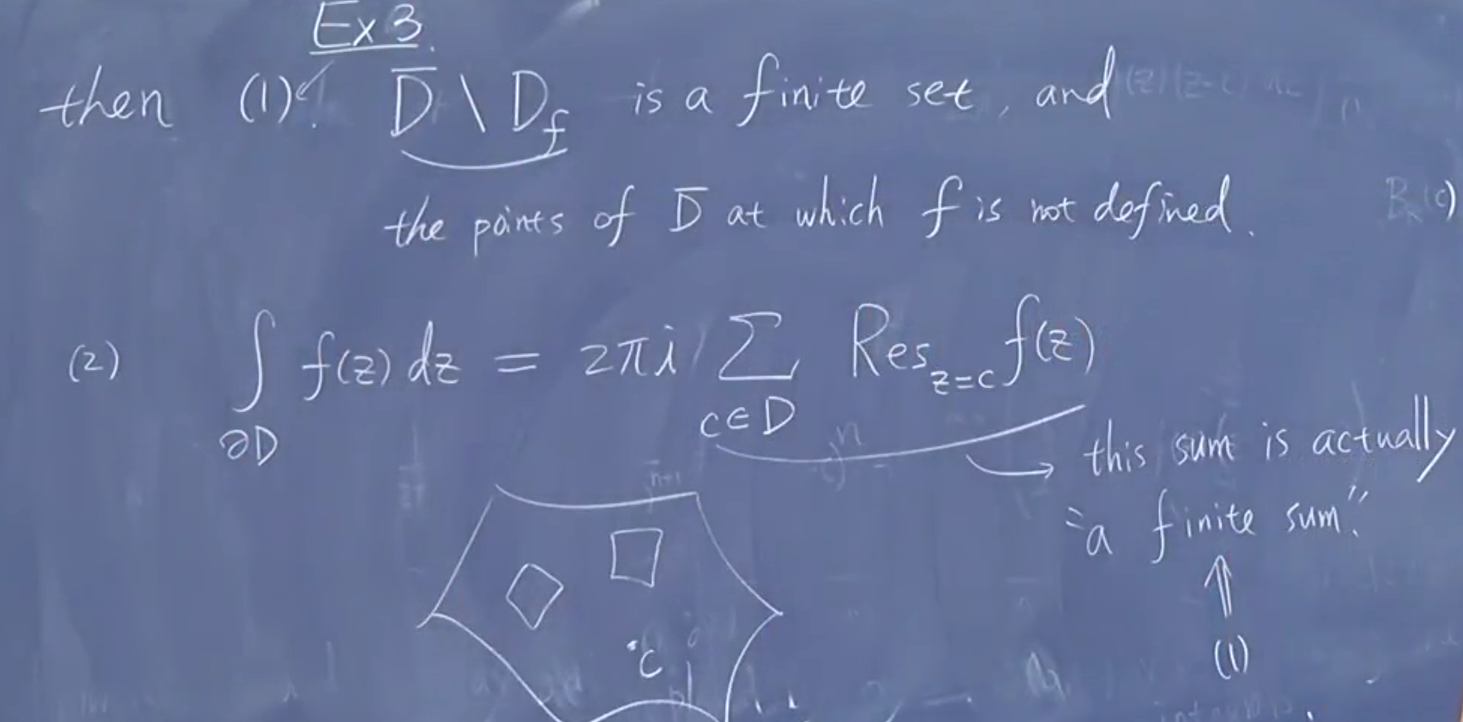 Ex 3.
then (1). D̅ \ D_f is a finite set, and
the points of D̅ at which f is not defined.
(2) ∫_{∂D} f(z) dz = 2πi ∑_{c∈D} Res_{z=c} f(z)
→ this sum is actually
"a finite sum."
⇑
(1)
c